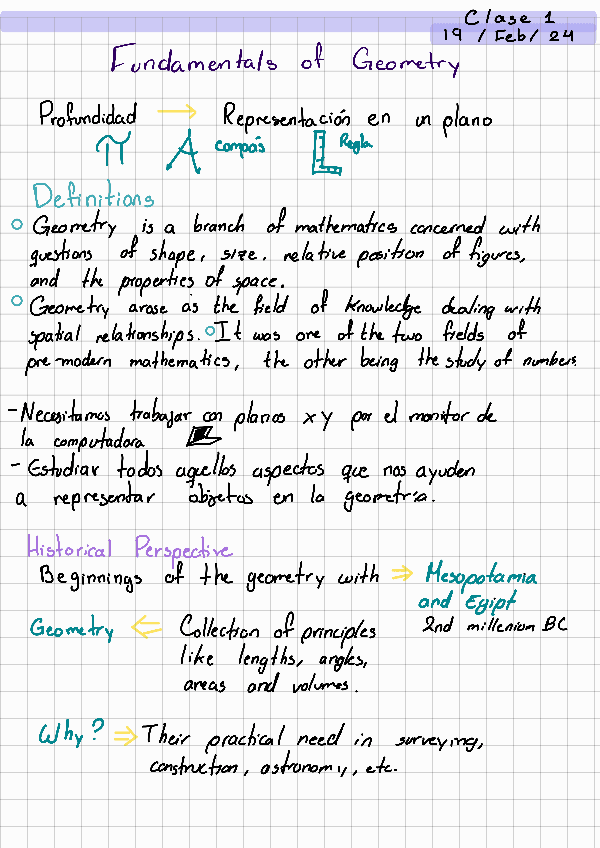 Clase 1
19 / Feb / 24
Fundamentals of Geometry
Profundidad → Representación en un plano
π compás Regla
Definitions
Geometry is a branch of mathematics concerned with
questions of shape, size, relative position of figures,
and the properties of space.
Geometry arose as the field of knowledge dealing with
spatial relationships. It was one of the two fields of
pre-modern mathematics, the other being the study of numbers.
- Necesitamos trabajar con planos x y por el monitor de
la computadora
- Estudiar todos aquellos aspectos que nos ayuden
a representar objetos en la geometría.
Historical Perspective
Beginnings of the geometry with ⇒ Mesopotamia
and Egipt
2nd millenium BC
Geometry ⇐ Collection of principles
like lengths, angles,
areas and volumes.
Why? ⇒ Their practical need in surveying,
construction, astronomy, etc.